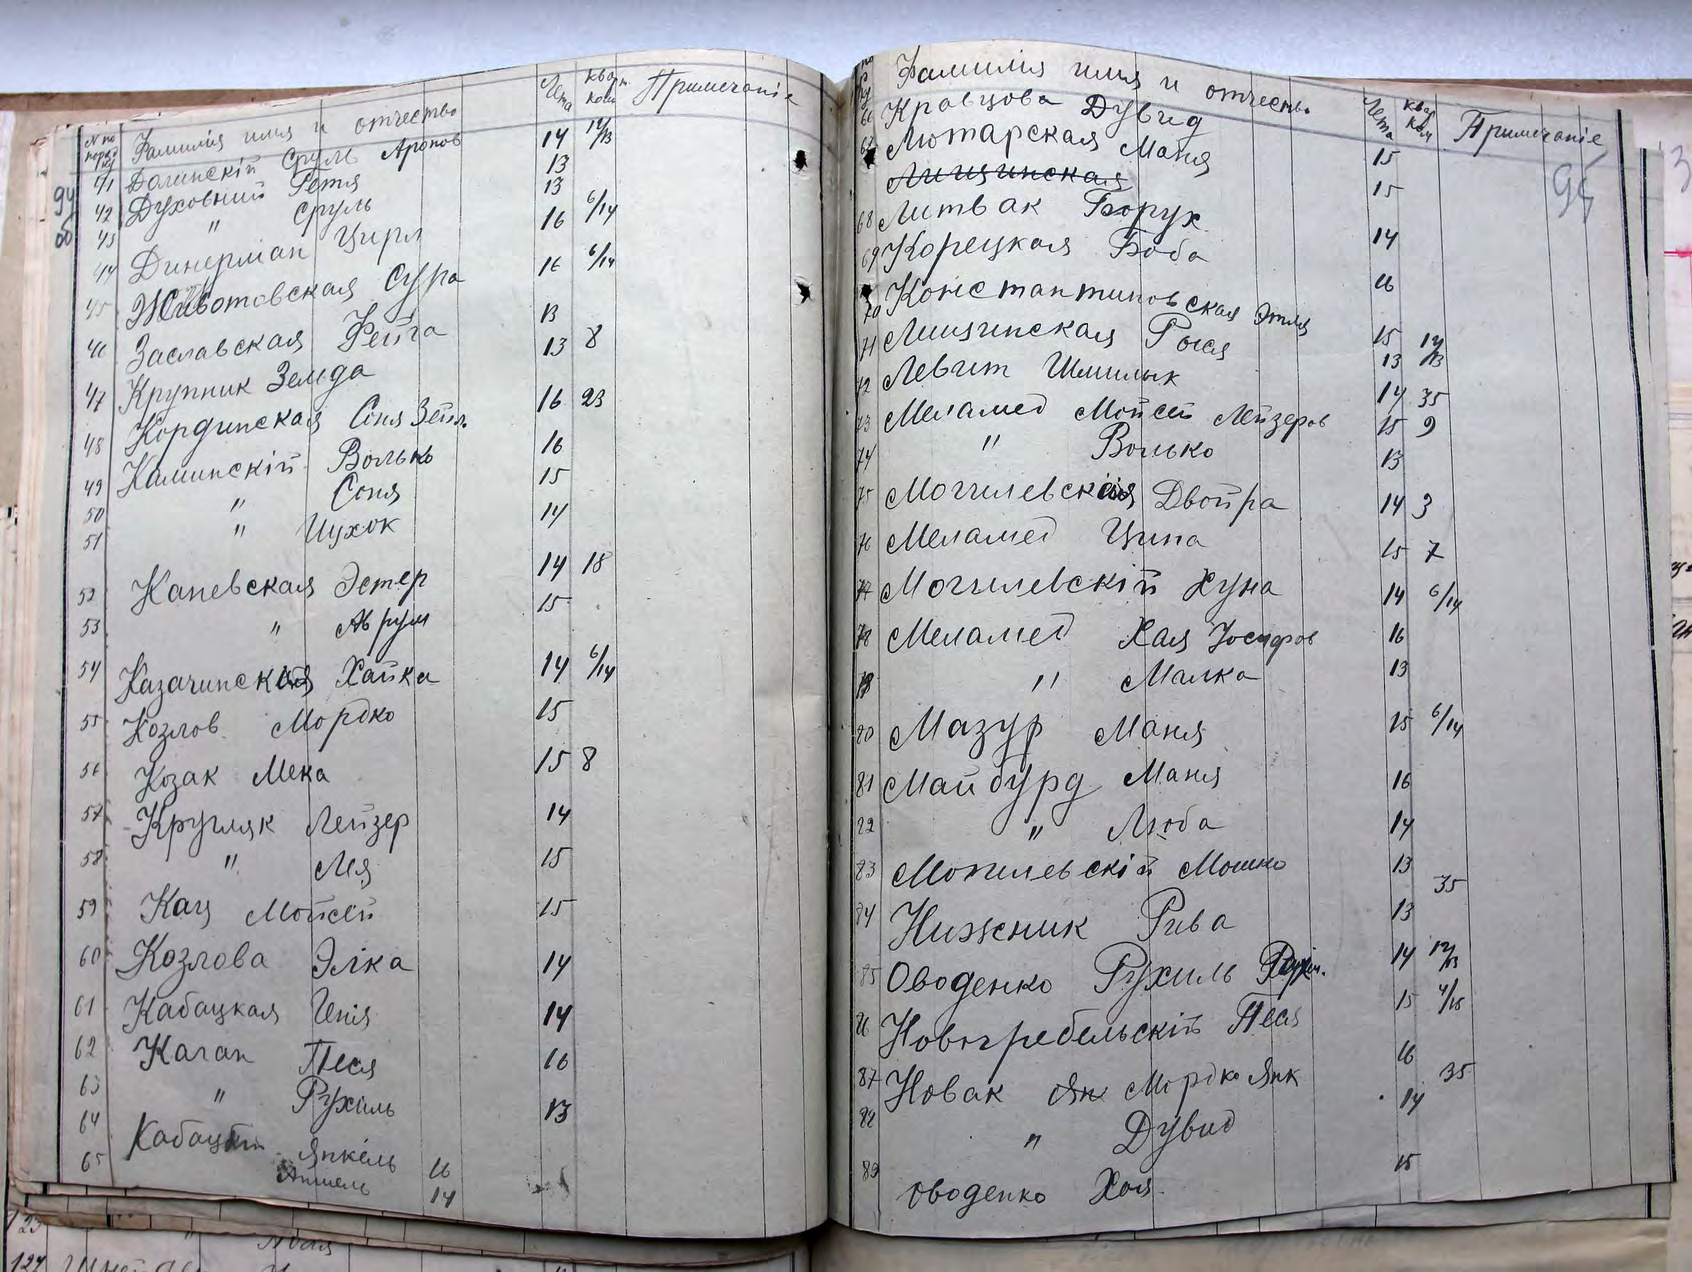 № по поряд Фамилія имя и отчество Лета квар. ком. Примечаніе
41 Долинскій Сруль Аронов 14 14/13
42 Духовний Тетя 13
43 " Сруль 13
44 Динерман Цирл 16 6/14
45 Животовская Сура 16 6/14
46 Заславская Фейга 13
47 Крупник Зельда 13 8
48 Кординская Соня Зейл. 16 23
49 Каминскій Волько 16
50 " Соня 15
51 " Иухок 14
52 Каневская Эстер 14 18
53 " Аврум 15
54 Казачинская Хайка 14 6/14
55 Козлов Мордко 15
56 Козак Мека 15 8
57 Кругляк Лейзер 14
58 " Лея 15
59 Кац Мойсей 15
60 Козлова Элка 14
61 Кабацкая Генія 14
62 Каган Песя 16
63 " Рухиль 13
64 Кабацкій Янкель 16
65 14
95
Фамилія имя и отчество Лета квар ком Примечаніе
66 Кравцова Дувид 15
67 Лютарская Маня 15
Лищинская
68 Литвак Борух 14
69 Корецкая Боба 16
70 Константиновская Этля 15 14/13
71 Лищинская Рося 13
72 Левит Шмилык 14 35
73 Меламед Мойсей Лейзеров 15 9
74 " Волько 13
75 Могилевская Двойра 14 3
76 Меламед Ципа 15 7
77 Могилевскій Хуна 14 6/14
78 Меламед Хая Іосифов 16
79 " Малка 13
80 Мазур Маня 15 6/14
81 Майбурд Маня 16
82 " Люба 14
83 Могилевскій Мошко 13 35
84 Нижник Рива 13
85 Оводенко Рухиль 14 14/13
86 Новогребельскій Песя 15 4/18
87 Новак Ян Мордко Янк 16 35
88 " Дувид 14
89 Оводенко Хая 15
123 "
124